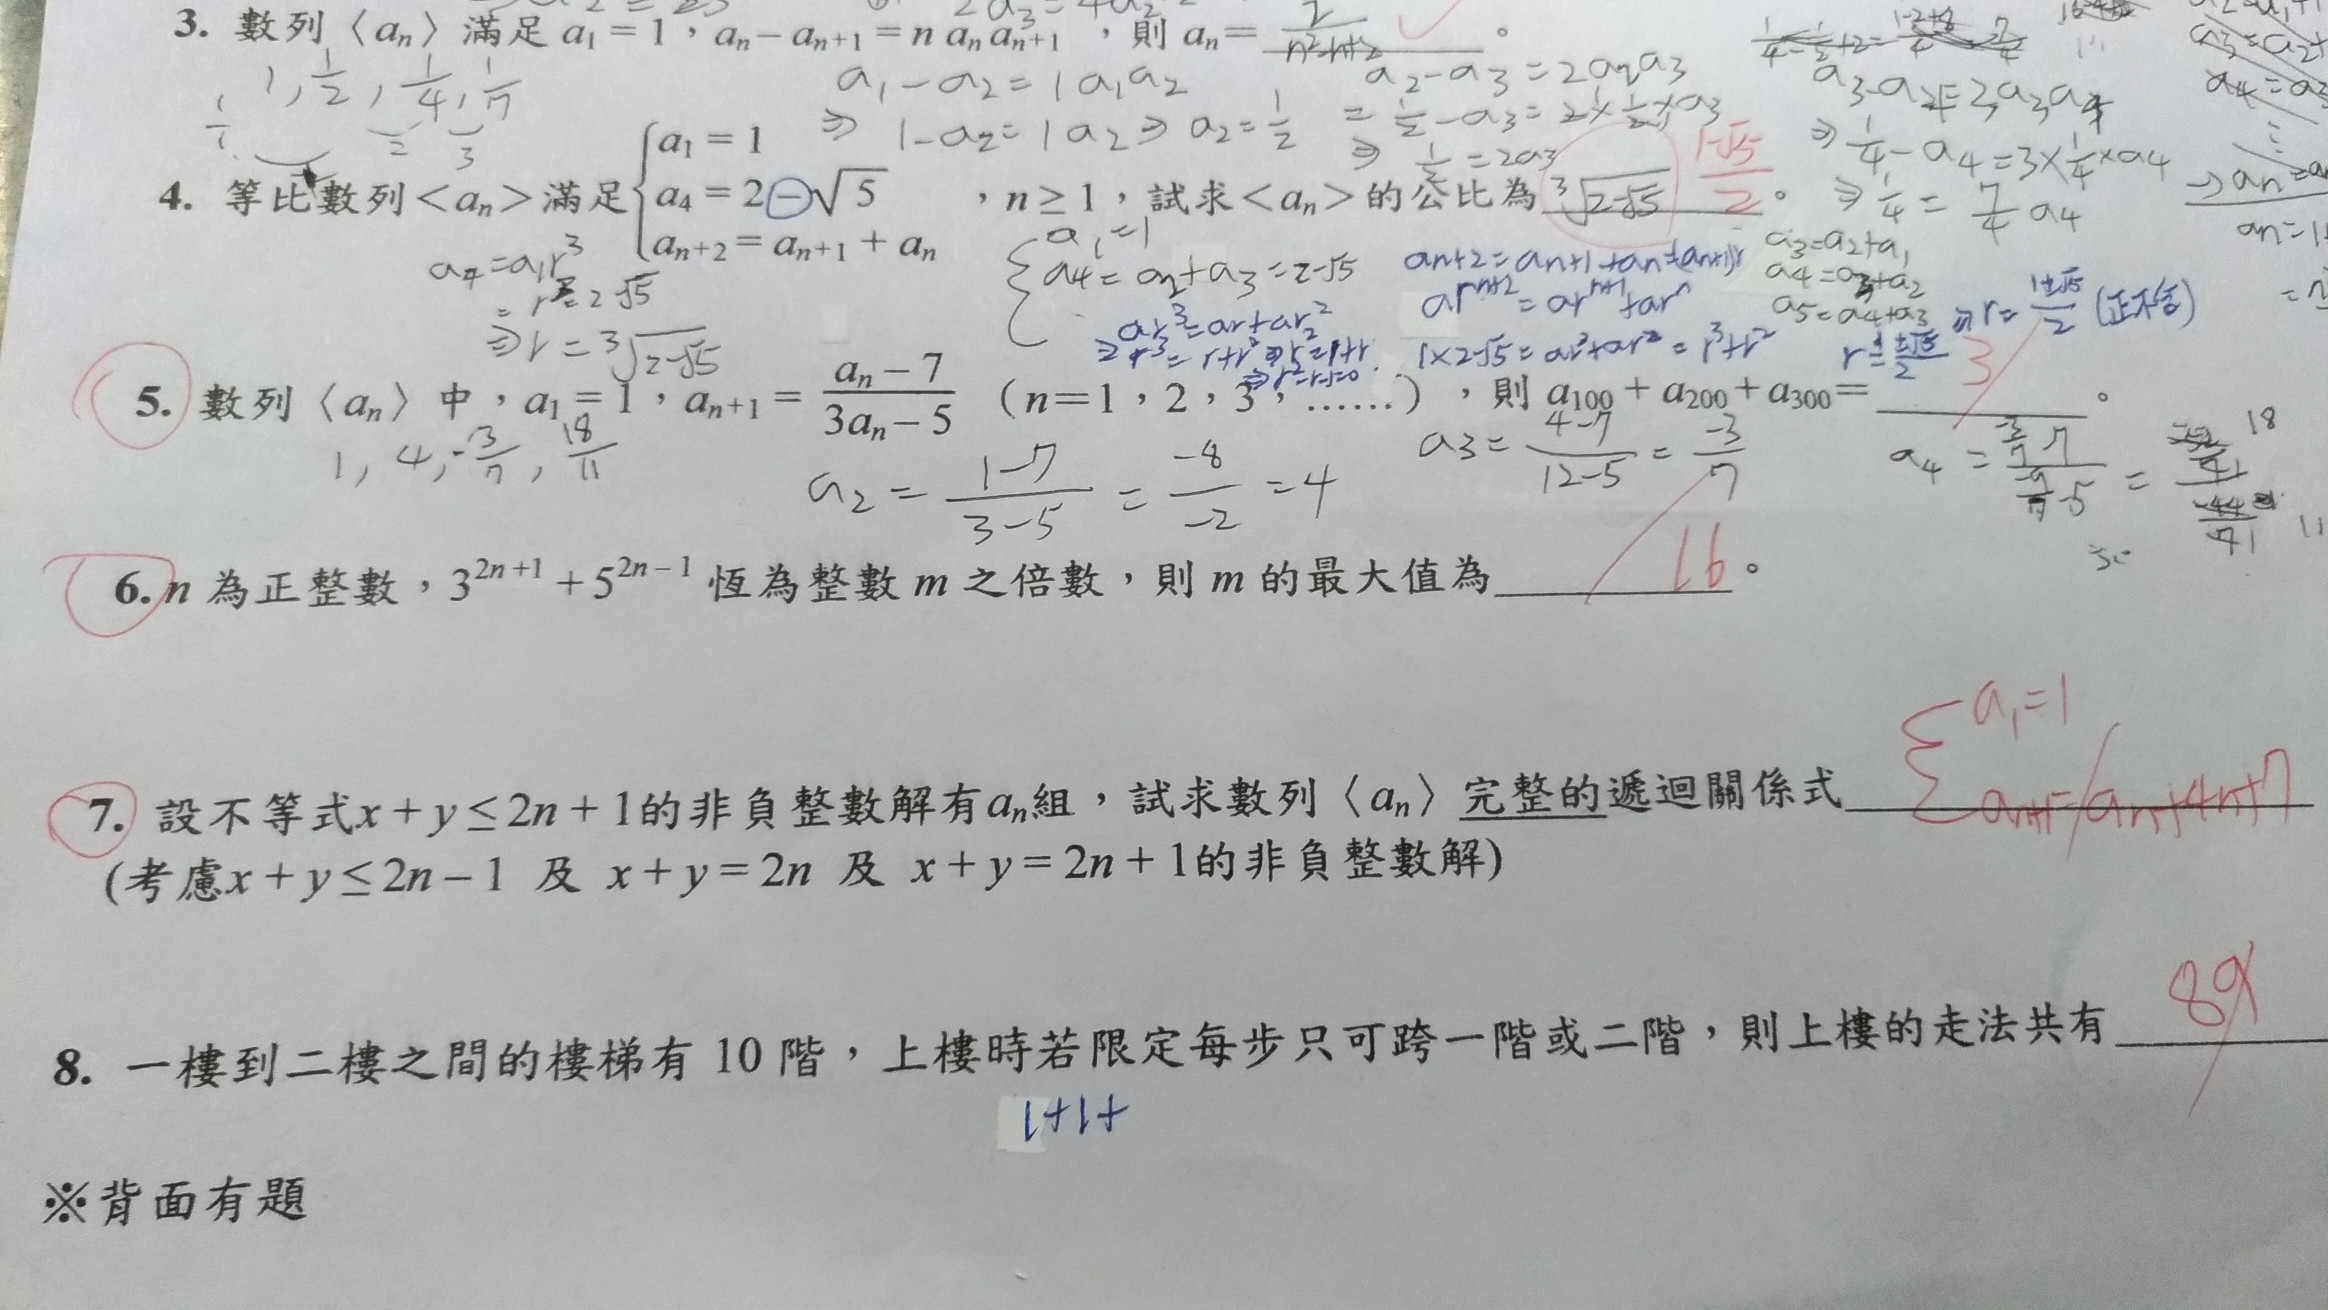 3. 數列〈aₙ〉滿足 a₁ = 1，aₙ − aₙ₊₁ = n aₙ aₙ₊₁ ，則 aₙ = 2/(n²-n+2) 。
1, 1/2, 1/4, 1/7
a₁ - a₂ = 1 a₁a₂
⇒ 1 - a₂ = 1 a₂ ⇒ a₂ = 1/2
a₂ - a₃ = 2a₂a₃
= 1/2 - a₃ = 2 × 1/2 × a₃
⇒ 1/2 = 2a₃
⇒ 1/4 - a₄ = 3 × 1/4 × a₄
⇒ 1/4 = 7/4 a₄
4. 等比數列<aₙ>滿足{a₁ = 1
a₄ = 2 − √5 ，n ≥ 1，試求<aₙ>的公比為 ³√(2-√5) (1-√5)/2 。
aₙ₊₂ = aₙ₊₁ + aₙ
a₄ = a₁r³
= r³ = 2-√5
⇒ r = ³√(2-√5)
{ a₁ = 1
a₄ = a₂ + a₃ = 2-√5
arⁿ⁺² = arⁿ⁺¹ + arⁿ
a₃ = a₂ + a₁
a₄ = a₃ + a₂
a₅ = a₄ + a₃
ar³ = ar + ar²
⇒ r³ = r + r² ⇒ r² = 1 + r
⇒ r² - r - 1 = 0
1 × 2-√5 = ar³ + ar² = r³ + r²
⇒ r = (1±√5)/2 (正不合)
5. 數列〈aₙ〉中，a₁ = 1，aₙ₊₁ = (aₙ − 7)/(3aₙ − 5) （n＝1，2，3，……），則 a₁₀₀ + a₂₀₀ + a₃₀₀ = 3 。
1, 4, -3/7, 18/11
a₂ = (1-7)/(3-5) = -8/-2 = 4
a₃ = (4-7)/(12-5) = -3/7
6. n 為正整數，3²ⁿ⁺¹ + 5²ⁿ⁻¹ 恆為整數 m 之倍數，則 m 的最大值為 16 。
7. 設不等式x + y ≤ 2n + 1的非負整數解有aₙ組，試求數列〈aₙ〉完整的遞迴關係式 { a₁ = 1
aₙ₊₁ = aₙ + 4n + 7
(考慮x + y ≤ 2n − 1 及 x + y = 2n 及 x + y = 2n + 1的非負整數解)
8. 一樓到二樓之間的樓梯有 10 階，上樓時若限定每步只可跨一階或二階，則上樓的走法共有 89
1+1+
※背面有題